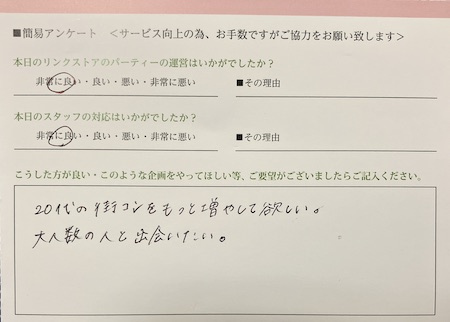 ■簡易アンケート ＜サービス向上の為、お手数ですがご協力をお願い致します＞
本日のリンクストアのパーティーの運営はいかがでしたか？
非常に良い・良い・悪い・非常に悪い ■その理由
本日のスタッフの対応はいかがでしたか？
非常に良い・良い・悪い・非常に悪い ■その理由
こうした方が良い・このような企画をやってほしい等、ご要望がございましたらご記入ください。
20代の街コンをもっと増やして欲しい。
大人数の人と出会いたい。